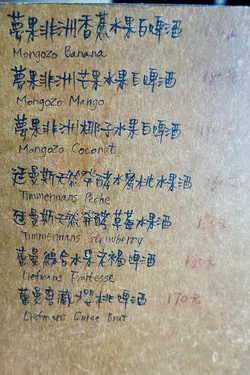 夢果非洲香蕉水果白啤酒
Mongozo Banana
夢果非洲芒果水果白啤酒
Mongozo Mango
夢果非洲椰子水果白啤酒
Mongozo Coconut
廷曼斯天然發酵水蜜桃水果酒
Timmermans Peche
廷曼斯天然發酵草莓水果酒
Timmermans Strawberry
蔓綜合水果 啤酒
Liefmans Fruitesse
蔓 窖藏櫻桃啤酒 170元
Liefmans Cuvee Brut